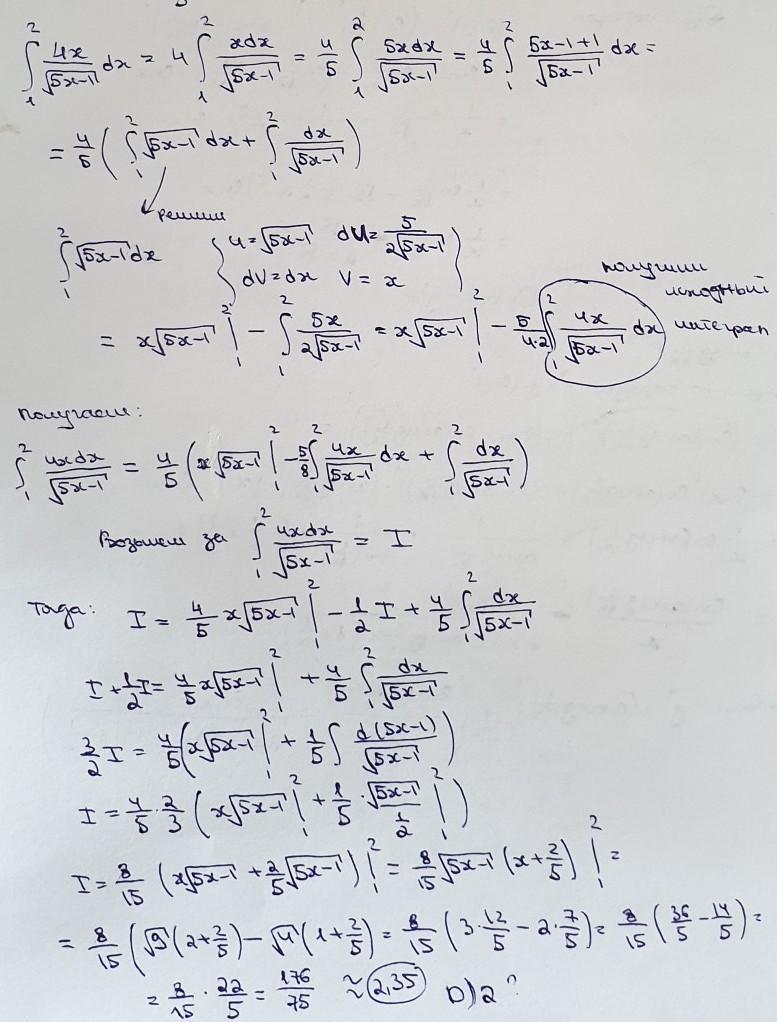 ∫₁² 4x/√(5x-1) dx = 4 ∫₁² xdx/√(5x-1) = 4/5 ∫₁² 5xdx/√(5x-1) = 4/5 ∫₁² (5x-1+1)/√(5x-1) dx =
= 4/5 ( ∫₁² √(5x-1) dx + ∫₁² dx/√(5x-1) )
решим
∫₁² √(5x-1) dx { u = √(5x-1) du = 5/(2√(5x-1)) }
{ dv = dx v = x }
получили исходный интеграл
= x√(5x-1) |₁² - ∫₁² 5x/(2√(5x-1)) = x√(5x-1) |₁² - 5/(4·2) ∫₁² 4x/√(5x-1) dx
получаем:
∫₁² 4xdx/√(5x-1) = 4/5 ( x√(5x-1) |₁² - 5/8 ∫₁² 4x/√(5x-1) dx + ∫₁² dx/√(5x-1) )
Возьмем за ∫₁² 4xdx/√(5x-1) = I
тогда: I = 4/5 x√(5x-1) |₁² - 1/2 I + 4/5 ∫₁² dx/√(5x-1)
I + 1/2 I = 4/5 x√(5x-1) |₁² + 4/5 ∫₁² dx/√(5x-1)
3/2 I = 4/5 ( x√(5x-1) |₁² + 1/5 ∫ d(5x-1)/√(5x-1) )
I = 4/5 · 2/3 ( x√(5x-1) |₁² + 1/5 · √(5x-1)/(1/2) |₁² )
I = 8/15 ( x√(5x-1) + 2/5 √(5x-1) ) |₁² = 8/15 √(5x-1) ( x + 2/5 ) |₁² =
= 8/15 ( √9 ( 2 + 2/5 ) - √4 ( 1 + 2/5 ) = 8/15 ( 3 · 12/5 - 2 · 7/5 ) = 8/15 ( 36/5 - 14/5 ) =
= 8/15 · 22/5 = 176/75 ≈ 2,35 D) 2 ?